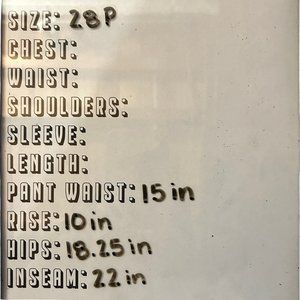 SIZE: 28P
CHEST:
WAIST:
SHOULDERS:
SLEEVE:
LENGTH:
PANT WAIST: 15 in
RISE: 10 in
HIPS: 18.25 in
INSEAM: 22 in